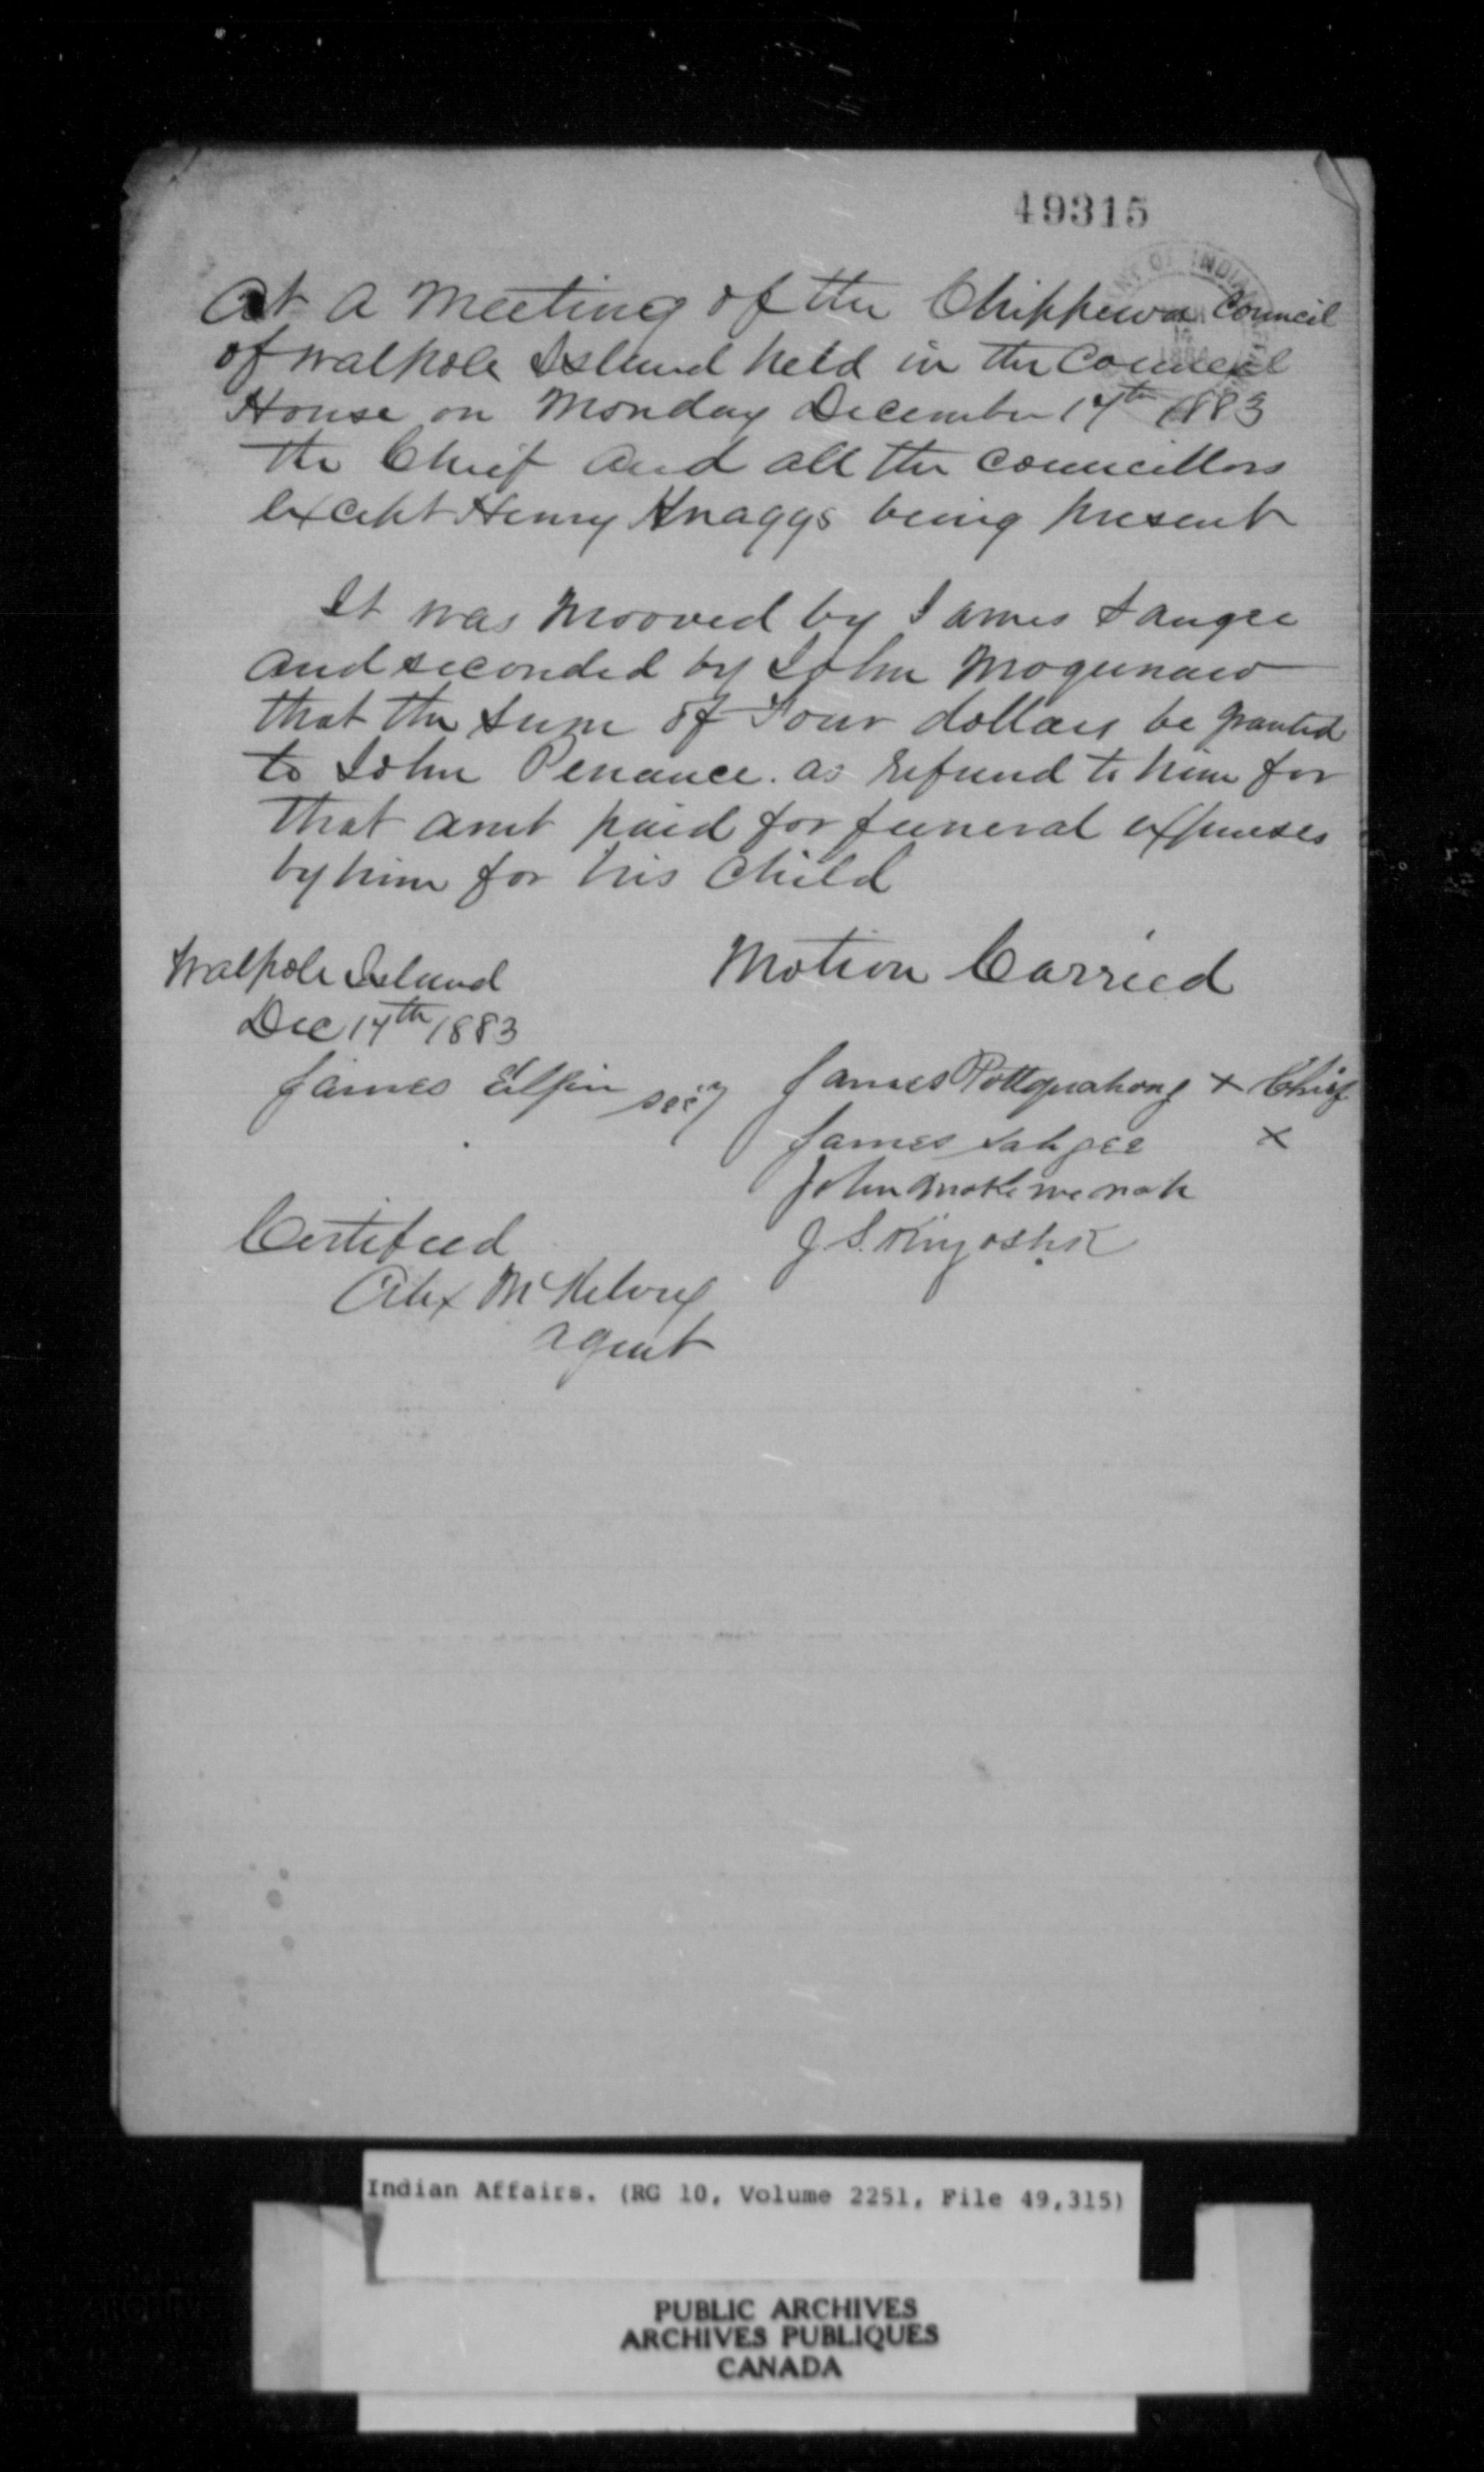 49315
At a Meeting of the Chippewa Council
of Walpole Island held in the Council
House on Monday December 17th 1883
the Chief and all the Councillors
except Henry Knaggs being present
It was Mooved by James Sangee
and seconded by John Moqunaw
that the sum of Four dollars be granted
to John Penance. as refund to him for
that amt paid for funeral expenses
by him for his Child
Motion Carried
Walpole Island
Dec 17th 1883
James Elfin secy
James Pottoquahong + Chief
James Sahgee x
John
J. S. Kiyoshk
Certifeed
Alex McKelvey
agent
Indian Affairs. (RG 10, Volume 2251, File 49,315)
PUBLIC ARCHIVES
ARCHIVES PUBLIQUES
CANADA